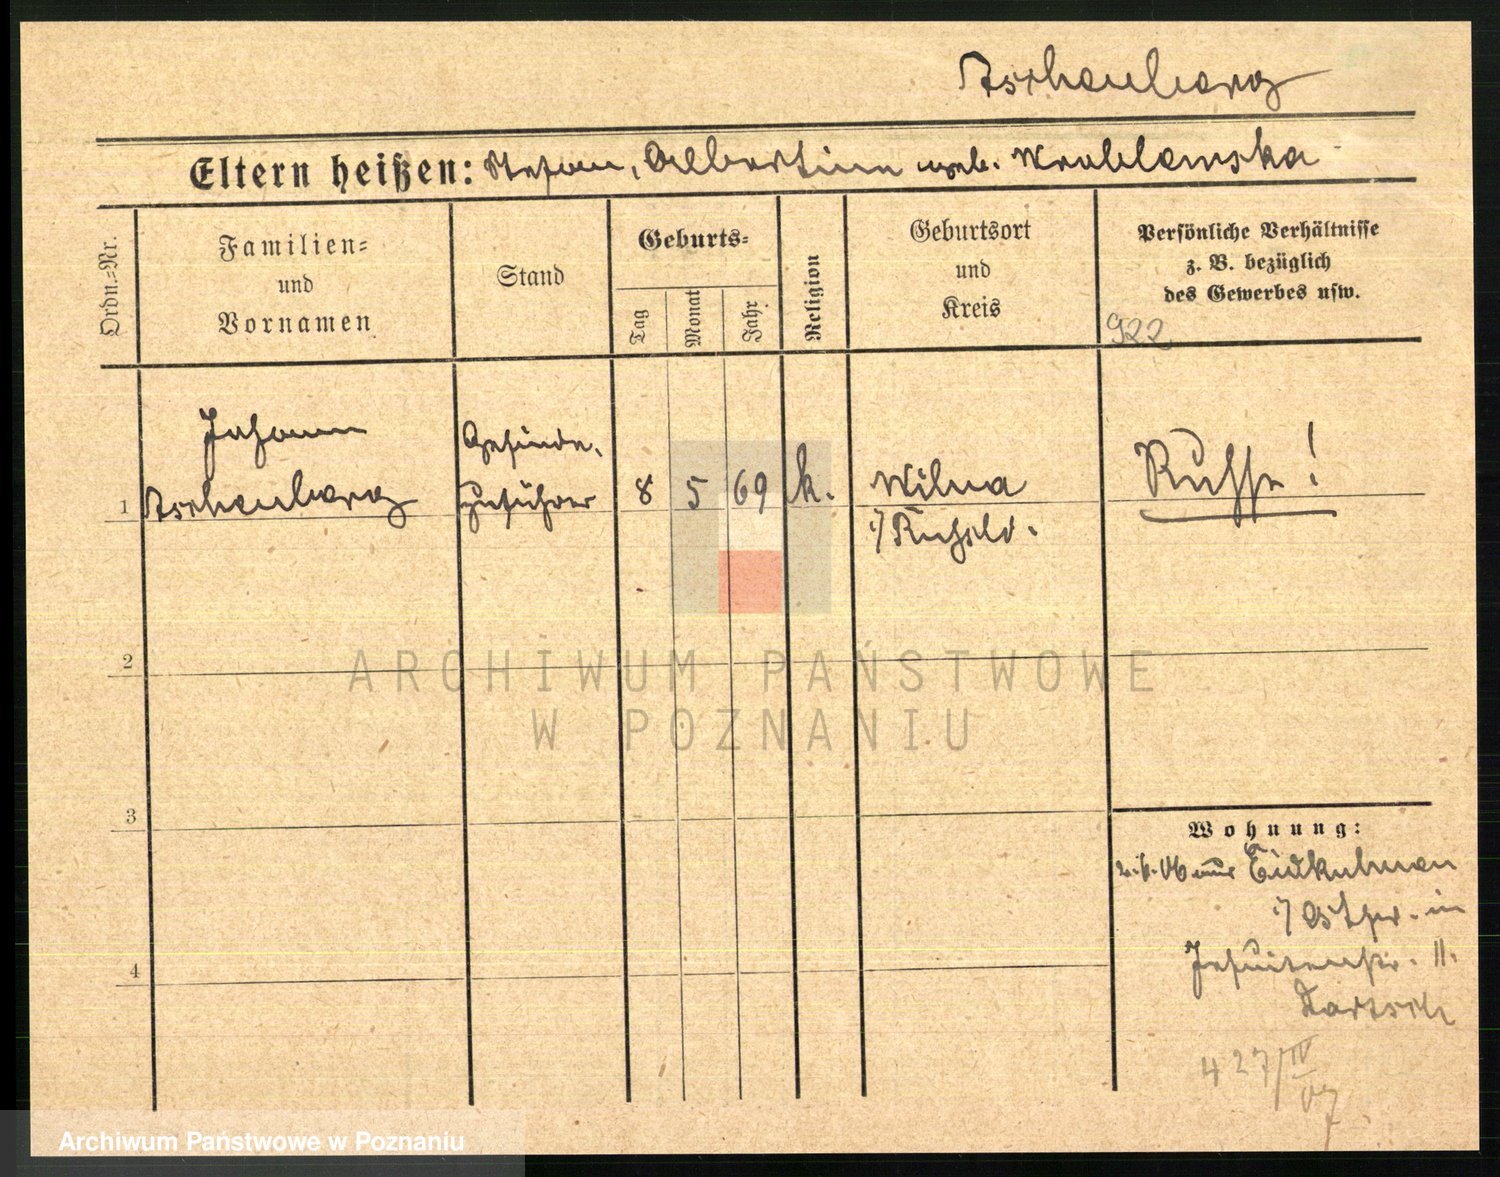 Tschenberg
Eltern heißen: Stefan, Albertine geb. Wroblewska
Ordn.=Nr.
Familien=
und
Vornamen
Stand
Geburts=
Tag
Monat
Jahr
Religion
Geburtsort
und
Kreis
Persönliche Verhältnisse
z. B. bezüglich
des Gewerbes usw.
922
Johann
1 Tschenberg
Gesinde.
zuführer
8 5 69 k.
Wilna
i/ Rußld.
Russe!
2
3
4
Wohnung:
06 Eidkuhnen
i/ Ostpr. in
Jesuitenstr. 11.
427/IV
07
ARCHIWUM PAŃSTWOWE
W POZNANIU
Archiwum Państwowe w Poznaniu